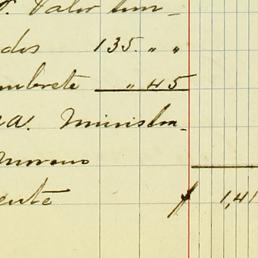 Valor tim-
dos 135. " "
mbrete " 45
a. Ministra-
Moreno
ente $ 1,41